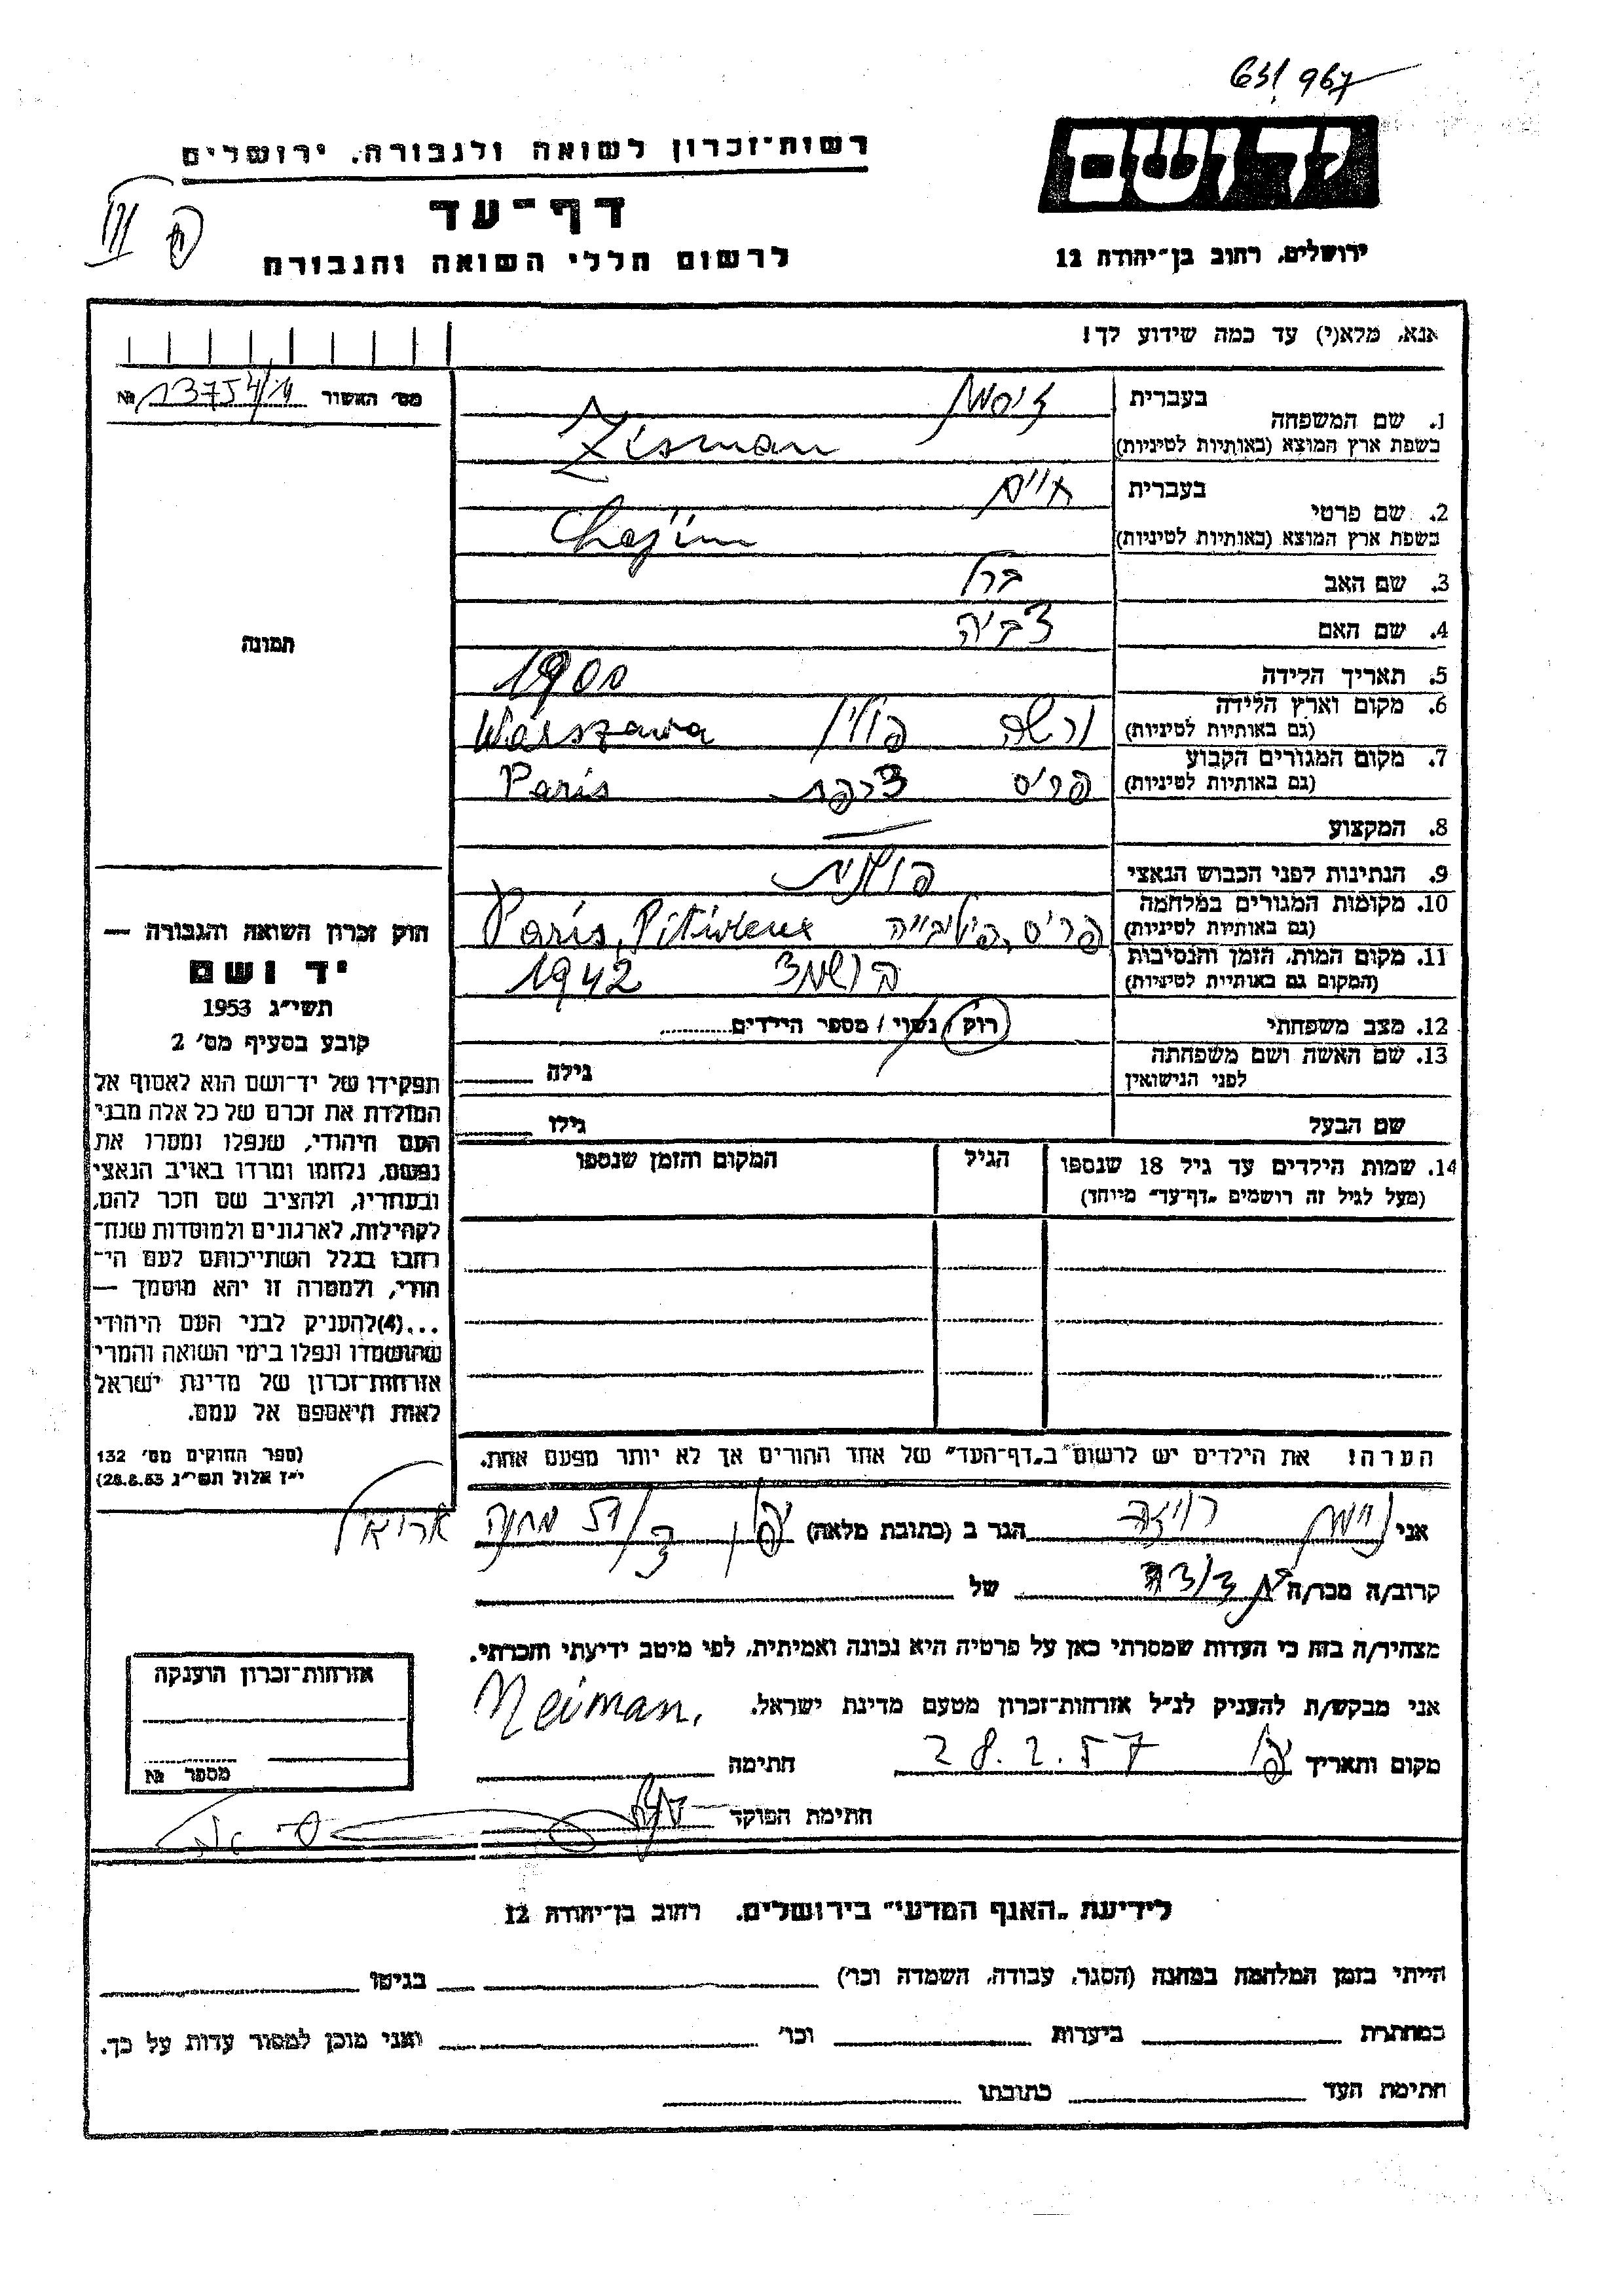 631 967
יד ושם
רשות־זכרון לשואה ולגבורה. ירושלים
דף־עד
לרשום חללי השואה והגבורה
ירושלים, רחוב בן־יהודה 12
III
אנא, מלא(י) עד כמה שידוע לך!
מס' האשור 13754/14 №
1. שם המשפחה
בעברית זיסמן
בשפת ארץ המוצא (באותיות לטיניות) Zisman
2. שם פרטי
בעברית חיים
בשפת ארץ המוצא (באותיות לטיניות) Chajim
3. שם האב ברל
4. שם האם צביה
תמונה
5. תאריך הלידה 1900
6. מקום וארץ הלידה
(גם באותיות לטיניות) ורשה פולין Warszawa
7. מקום המגורים הקבוע
(גם באותיות לטיניות) פריס צרפת Paris
8. המקצוע —
9. הנתינות לפני הכבוש הנאצי פולנית
10. מקומות המגורים במלחמה
(גם באותיות לטיניות) פריס, Paris,
11. מקום המות, הזמן והנסיבות
(המקום גם באותיות לטיניות) הושמד 1942
12. מצב משפחתי רוק / נשוי / מספר הילדים
13. שם האשה ושם משפחתה
לפני הנישואין גילה
שם הבעל גילו
14. שמות הילדים עד גיל 18 שנספו
(מעל לגיל זה רושמים "דף־עד" מיוחד)
הגיל
המקום והזמן שנספו
חוק זכרון השואה והגבורה —
יד ושם
תשי"ג 1953
קובע בסעיף מס' 2
תפקידו של יד־ושם הוא לאסוף אל
המולדת את זכרם של כל אלה מבני
העם היהודי, שנפלו ומסרו את
נפשם, נלחמו ומרדו באויב הנאצי
ובעוזריו, ולהציב שם וזכר להם,
לקהילות, לארגונים ולמוסדות שנח־
רבו בגלל השתייכותם לעם הי־
הודי, ולמטרה זו יהא מוסמך —
...(4)להעניק לבני העם היהודי
שהושמדו ונפלו בימי השואה והמרי
אזרחות־זכרון של מדינת ישראל
לאות היאספם אל עמם.
(ספר החוקים מס' 132
י"ז אלול תשי"ג 28.8.53)
הערה! את הילדים יש לרשום ב"דף־העד" של אחד ההורים אך לא יותר מפעם אחת.
אני הגר ב (כתובת מלאה)
קרוב/ה מכר/ה של
מצהיר/ה בזה כי העדות שמסרתי כאן על פרטיה היא נכונה ואמיתית, לפי מיטב ידיעתי והכרתי.
אני מבקש/ת להעניק לנ"ל אזרחות־זכרון מטעם מדינת ישראל.
מקום ותאריך 28.2.57 חתימה Neuman.
חתימת הפוקד
אזרחות־זכרון הוענקה
מספר №
לידיעת "האגף המדעי" בירושלים. רחוב בן־יהודה 12
הייתי בזמן המלחמה במחנה (הסגר, עבודה, השמדה וכו') בגיטו
במחתרת ביערות וכו' ואני מוכן למסור עדות על כך.
חתימת העד כתובתו